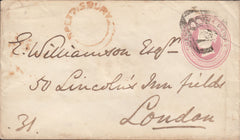 SHAFTESBURY
E. Williamson Esqre
50 Lincoln's Inn fields
London
31